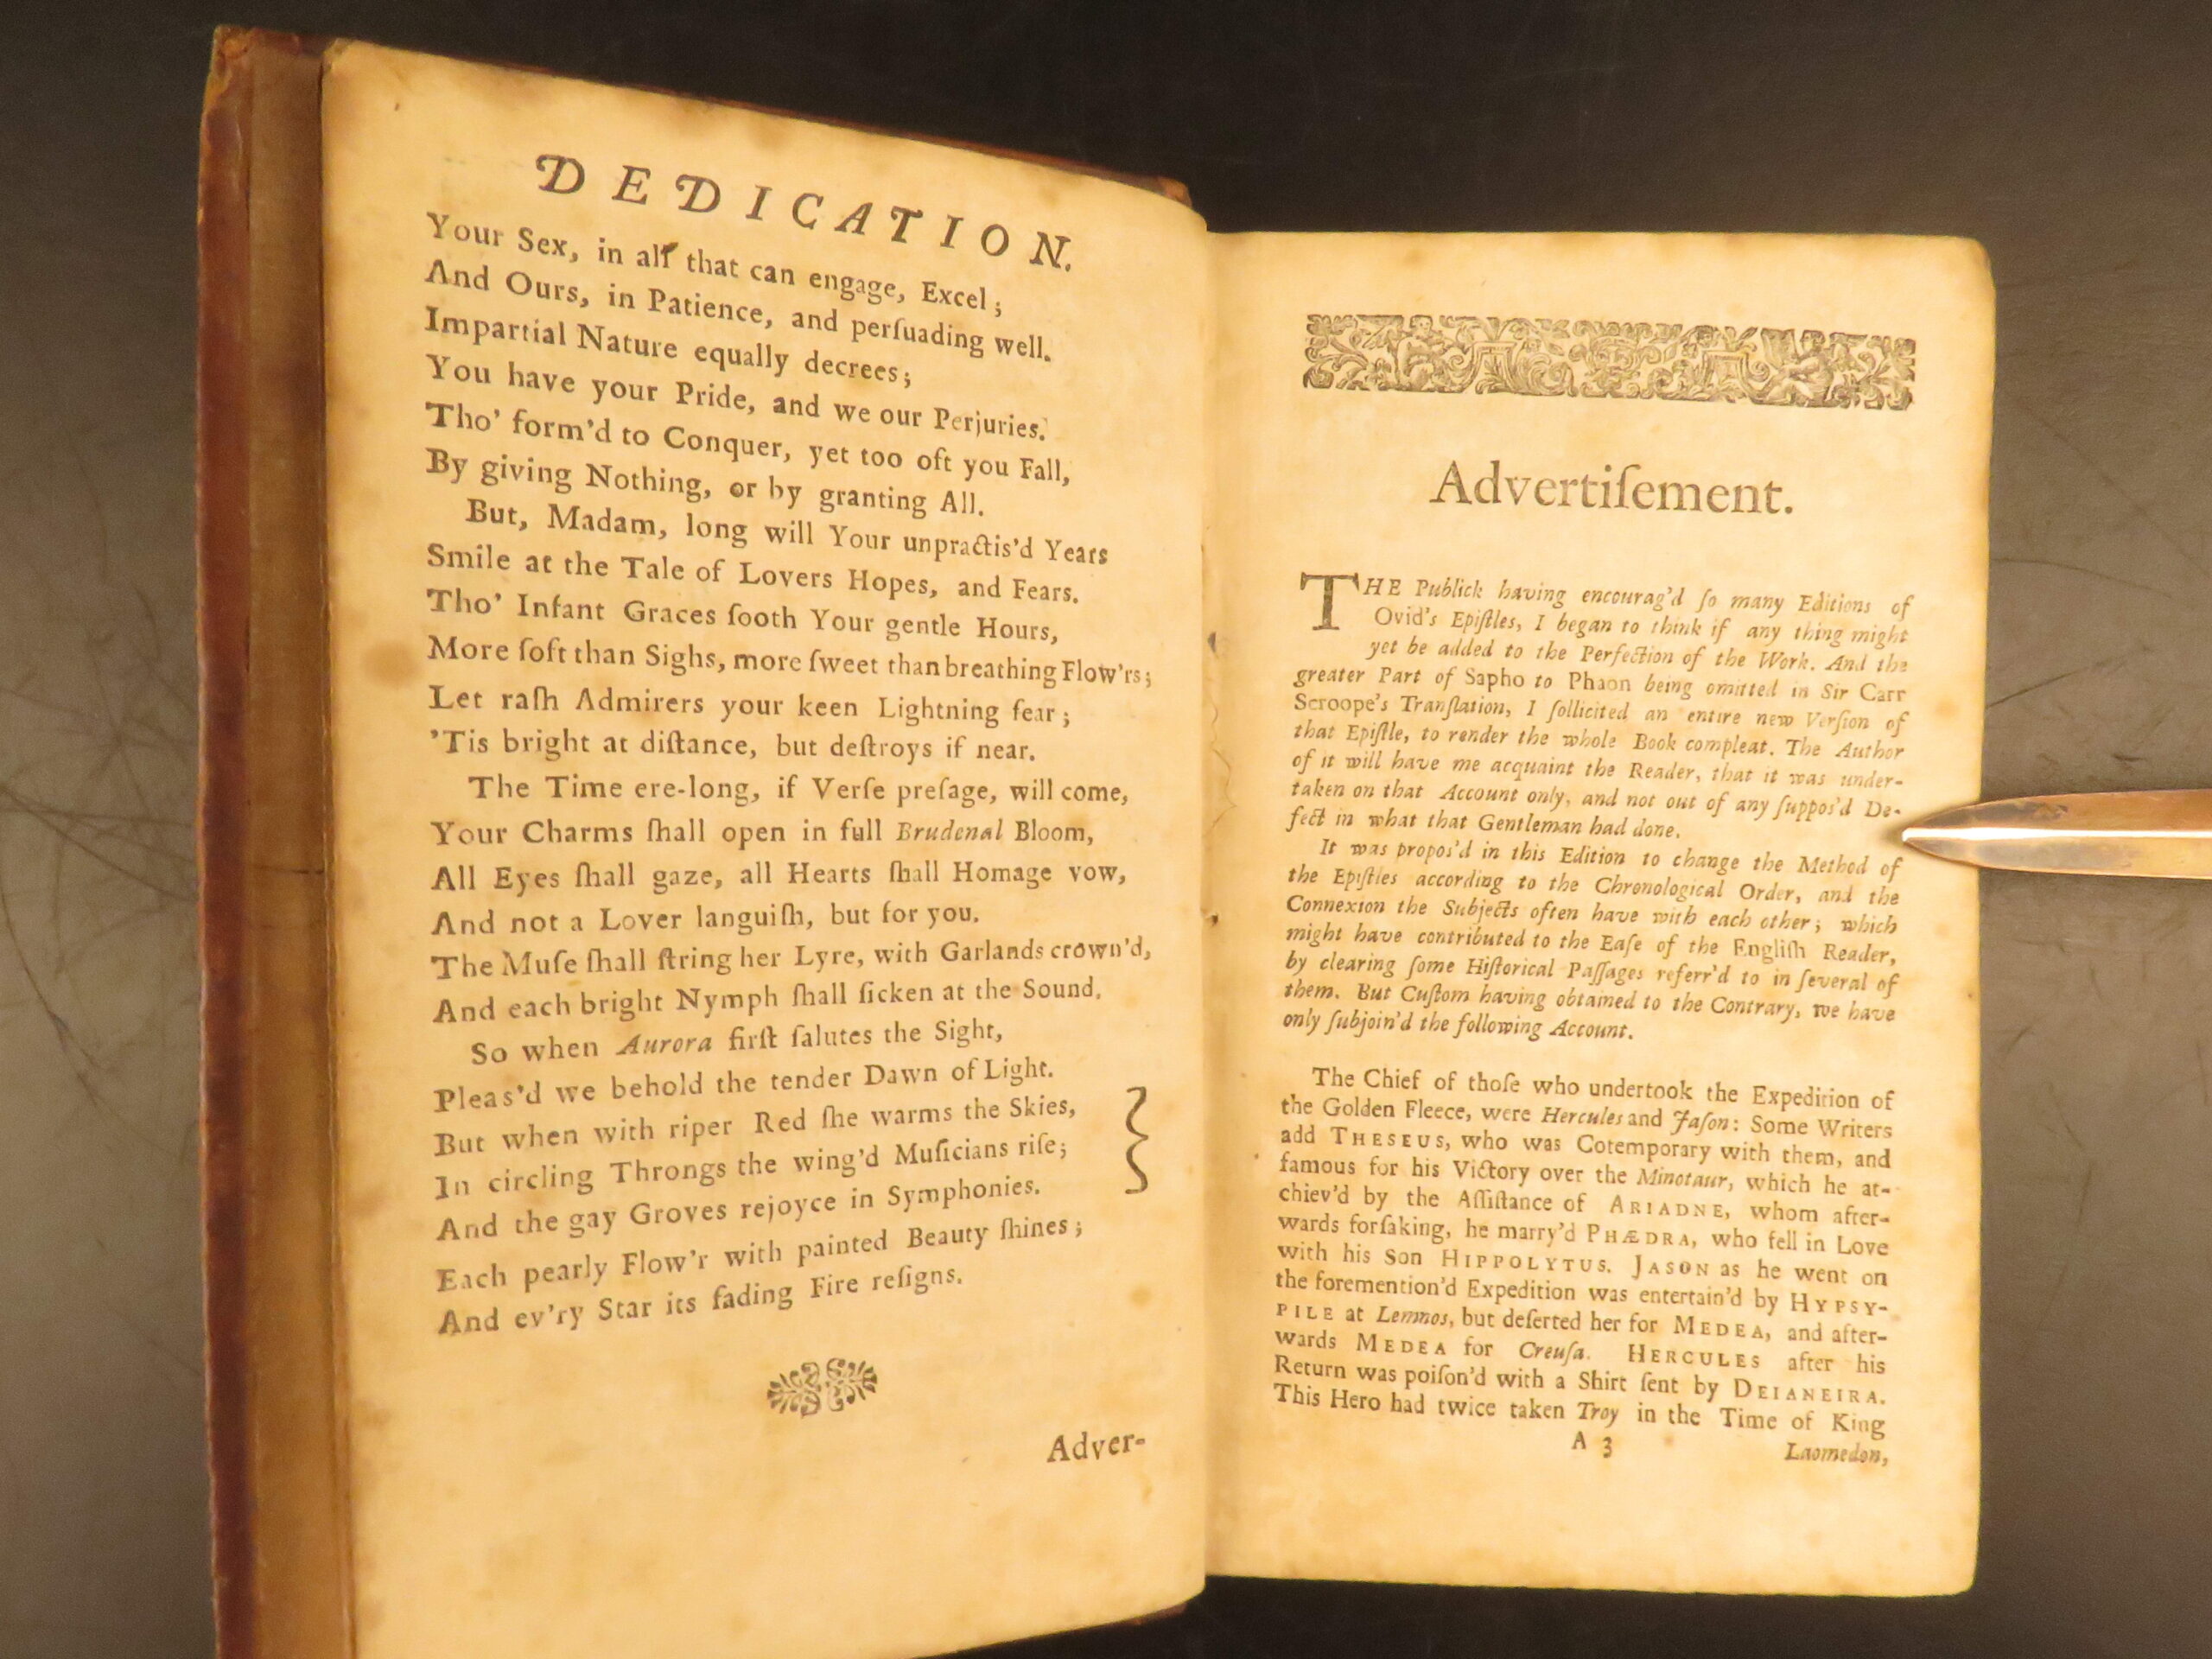 DEDICATION.
Your Sex, in all that can engage, Excel;
And Ours, in Patience, and perſuading well.
Impartial Nature equally decrees;
You have your Pride, and we our Perjuries.
Tho' form'd to Conquer, yet too oft you Fall,
By giving Nothing, or by granting All.
But, Madam, long will Your unpractis'd Years
Smile at the Tale of Lovers Hopes, and Fears.
Tho' Infant Graces ſooth Your gentle Hours,
More ſoft than Sighs, more ſweet than breathing Flow'rs;
Let raſh Admirers your keen Lightning fear;
'Tis bright at diſtance, but deſtroys if near.
The Time ere-long, if Verſe preſage, will come,
Your Charms ſhall open in full Brudenal Bloom,
All Eyes ſhall gaze, all Hearts ſhall Homage vow,
And not a Lover languiſh, but for you.
The Muſe ſhall ſtring her Lyre, with Garlands crown'd,
And each bright Nymph ſhall ſicken at the Sound.
So when Aurora firſt ſalutes the Sight,
Pleas'd we behold the tender Dawn of Light.
But when with riper Red ſhe warms the Skies,
In circling Throngs the wing'd Muſicians riſe;
And the gay Groves rejoyce in Symphonies.
Each pearly Flow'r with painted Beauty ſhines;
And ev'ry Star its fading Fire reſigns.
Adver-
Advertiſement.
THE Publick having encourag'd ſo many Editions of
Ovid's Epiſtles, I began to think if any thing might
yet be added to the Perfection of the Work. And the
greater Part of Sapho to Phaon being omitted in Sir Carr
Scroope's Tranſlation, I ſollicited an entire new Verſion of
that Epiſtle, to render the whole Book compleat. The Author
of it will have me acquaint the Reader, that it was under-
taken on that Account only, and not out of any ſuppos'd De-
fect in what that Gentleman had done.
It was propos'd in this Edition to change the Method of
the Epiſtles according to the Chronological Order, and the
Connexion the Subjects often have with each other; which
might have contributed to the Eaſe of the Engliſh Reader,
by clearing ſome Hiſtorical Paſſages referr'd to in ſeveral of
them. But Cuſtom having obtained to the Contrary, we have
only ſubjoin'd the following Account.
The Chief of thoſe who undertook the Expedition of
the Golden Fleece, were Hercules and Jaſon: Some Writers
add THESEUS, who was Cotemporary with them, and
famous for his Victory over the Minotaur, which he at-
chiev'd by the Aſſiſtance of ARIADNE, whom after-
wards forſaking, he marry'd PHÆDRA, who fell in Love
with his Son HIPPOLYTUS. JASON as he went on
the foremention'd Expedition was entertain'd by HYPSY-
PILE at Lemnos, but deſerted her for MEDEA, and after-
wards MEDEA for Creuſa. HERCULES after his
Return was poiſon'd with a Shirt ſent by DEIANEIRA.
This Hero had twice taken Troy in the Time of King
A 3
Laomedon,